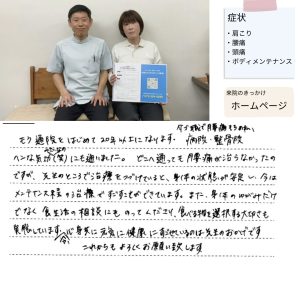 症状
・肩こり
・腰痛
・頭痛
・ボディメンテナンス
来院のきっかけ
ホームページ
もう通院をはじめて20年以上になります。病院・整骨院
ヘンな気功(笑)にも通いました。どこへ通っても腰痛が治らなかったの
ですが、先生のところで治療をつづけていると、身体の状態が安定し、今は
メンテナンス程の治療ですむことができています。また、身体のゆがみだけ
でなく食生活の相談にものってくださり、食べる物を選択する大切さも
実感しています。心身共に元気に健康に
いるのは先生のおかげです
これからもよろしくお願い致します